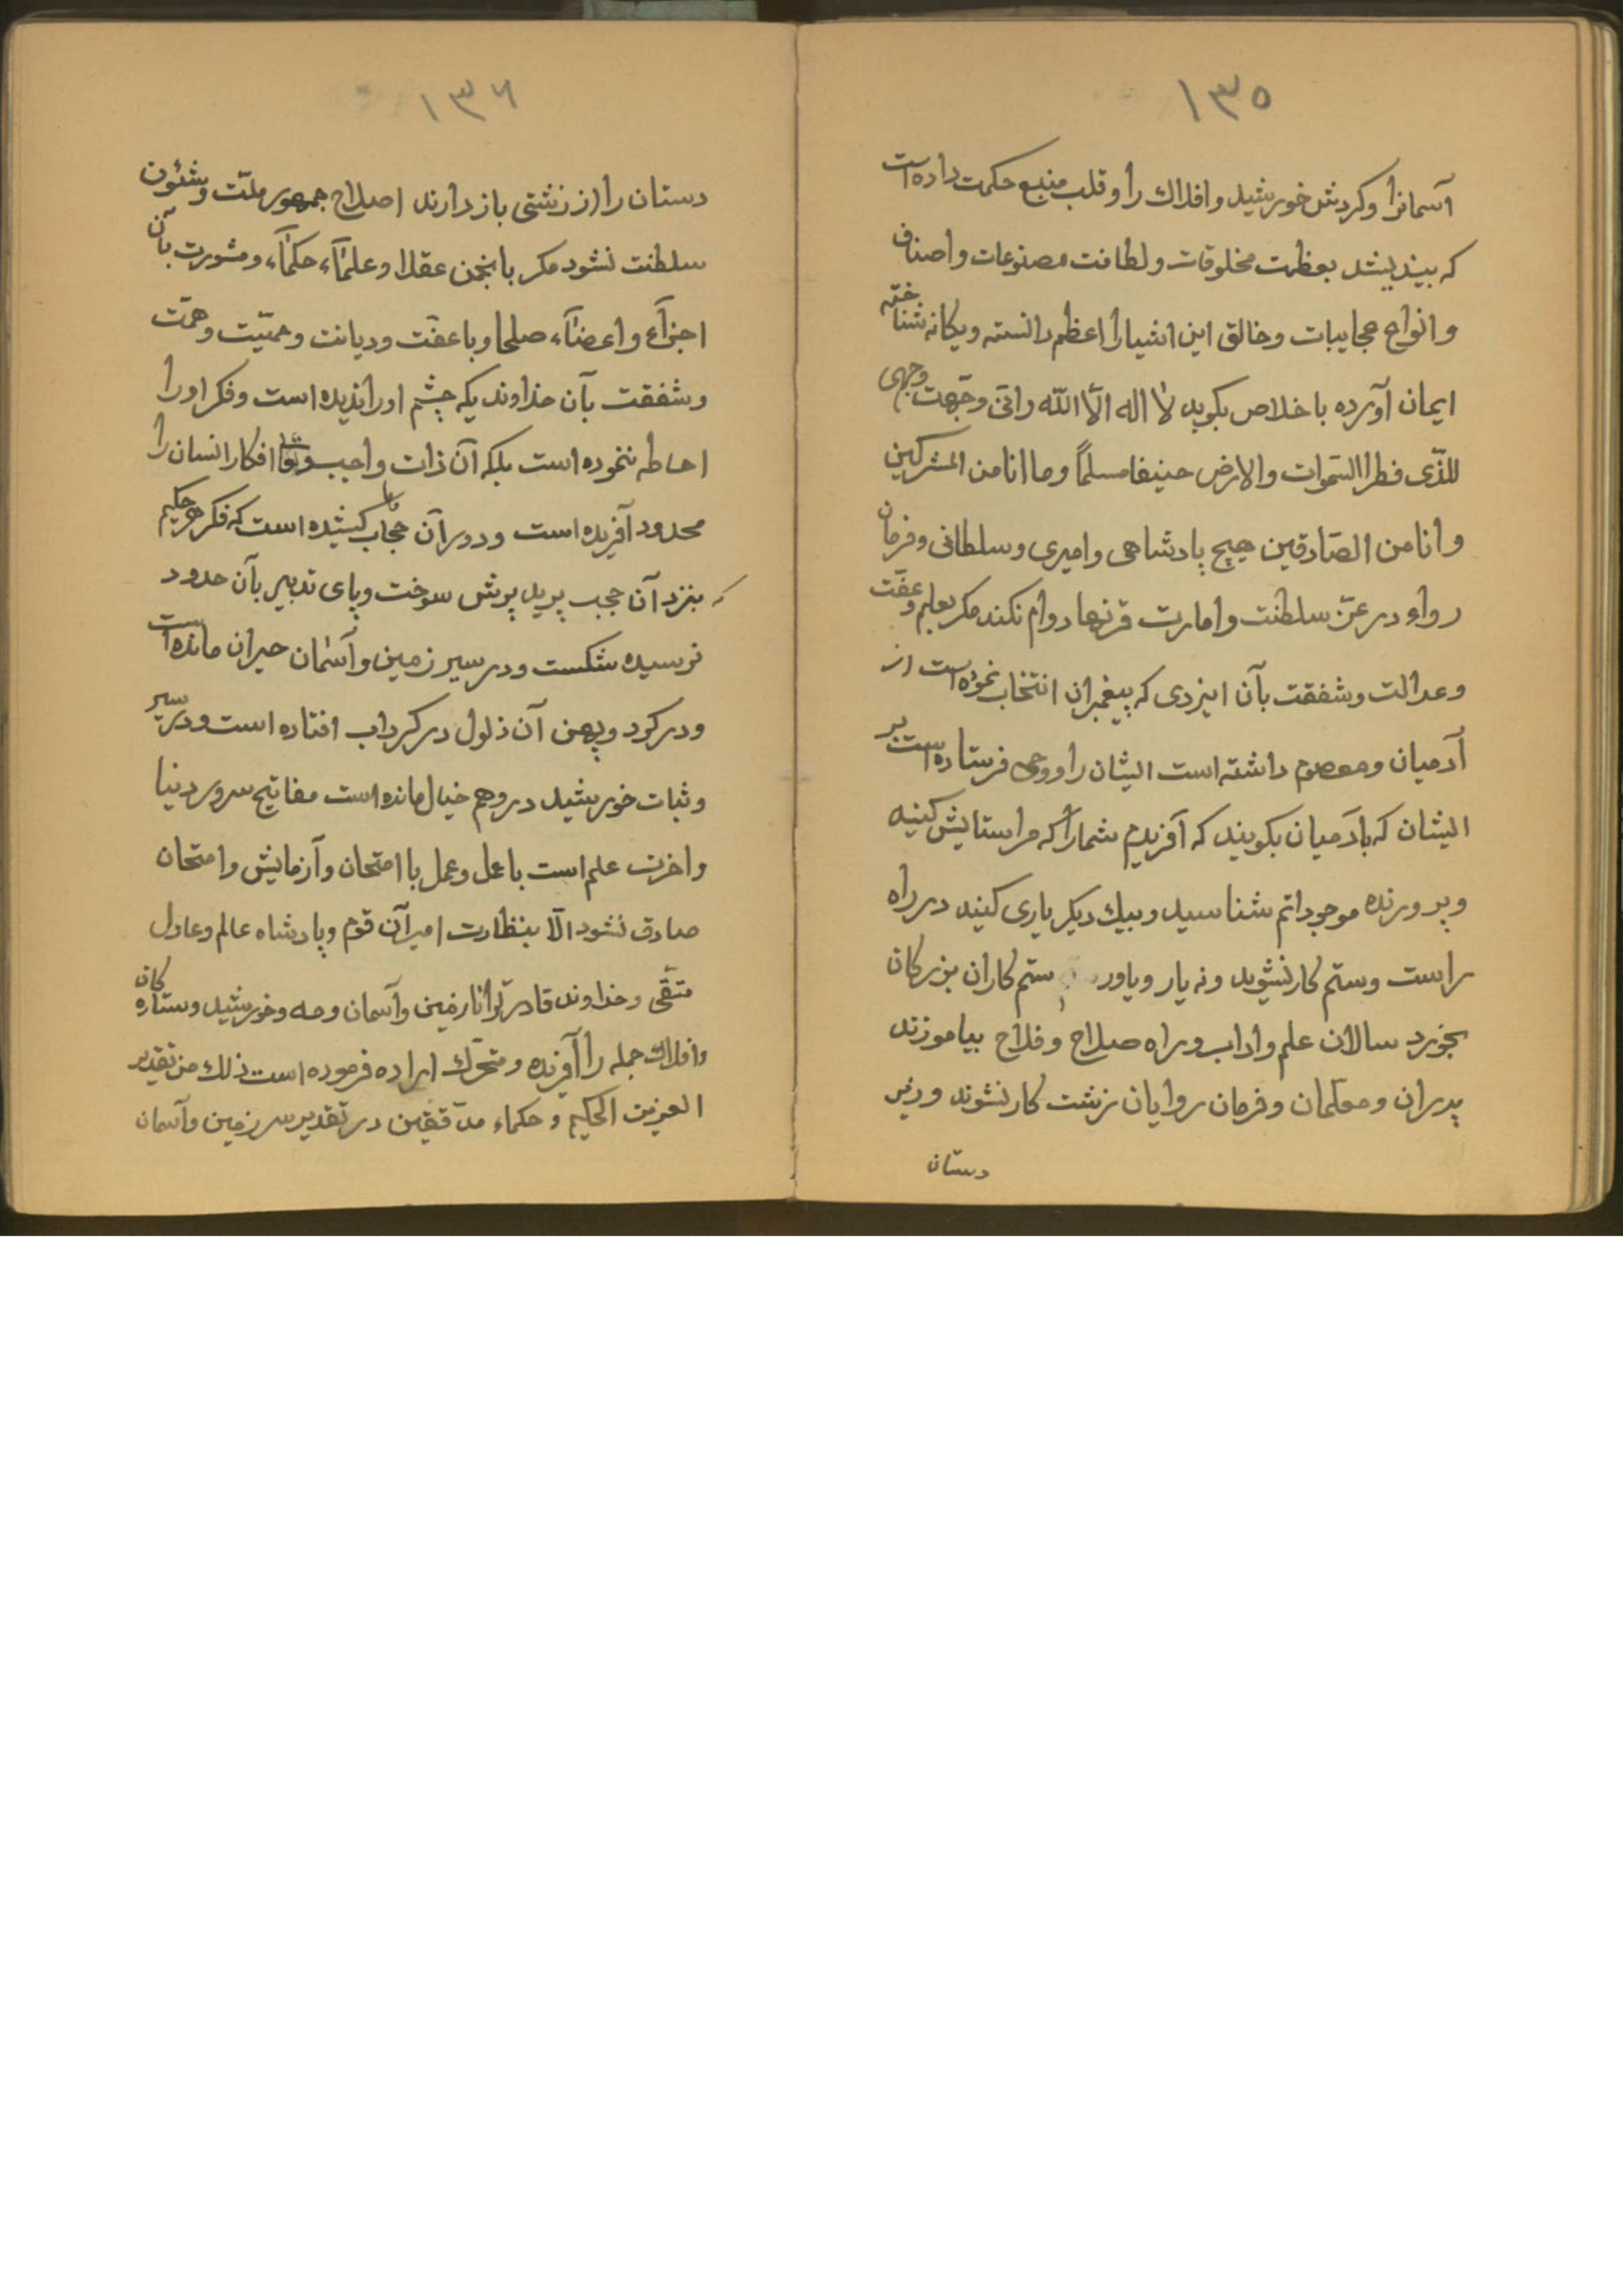 ١٣٥
آسمانرا و کردش خورشید و افلاك را و قلب منبع حکمت داده است
که بیندیشد بعظمت مخلوقات و لطافت مصنوعات و اصناف
و انواع عجایبات و خالق این اشیارا اعظم دانسته و یکانه شناخته
ایمان آورده باخلاص بکوید لا اله الّا اللّه و انّی وجّهت وجهی
للذّی فطر السّموات والارض حنیفا مسلماً وما انا من المشرکین
وانا من الصّادقین هیچ پادشاهی و امیری و سلطانی و فرمان
رواء در عزّ سلطنت و امارت قرنها دوام نکند مکر بعلم و عفّت
و عدالت و شفقت بآن ایزدی که پیغمبران انتخاب نموده است از
آدمیان و معصوم داشته است ایشان را و وحی فرستاده است بر
ایشان که بآدمیان بکویند که آفریدم شمارا که مرا ستایش کنید
و پرورنده موجوداتم شناسید و بیك دیکر یاری کنید در راه
راست و ستم کار نشوید و نه یار و یاور ستم کاران بزرکان
بخورد سالان علم و اداب و راه صلاح و فلاح بیاموزند
پدران و معلّمان و فرمان روایان زشت کار نشوند و زیر
دستان
١٣٦
دستان را از زشتی باز دارند اصلاح جمهور ملّت و شئون
سلطنت نشود مکر بانجمن عقلا و علمآء، حکمآء، و مشورت بآن
اجزآء و اعضآء، صلحا و با عفّت و دیانت و حمیّت و همّت
و شفقت بآن خداوندیکه چشم او را ندیده است و فکر او را
احاطه ننموده است بلکه آن ذات واجب و افکار انسان را
محدود آفریده است و دور آن حجاب کشیده است که فکر هر حکیم
که بنزد آن حجب پرید پرش سوخت و پای تدبیر بآن حدود
نرسیده شکست و در سیر زمین و آسمان حیران مانده است
و در کرد و پهن آن ذلول در کرداب افتاده است و در سیر
و ثبات خورشید در وهم خیال مانده است مفاتیح سرور دنیا
واخرت علم است با عمل و عمل با امتحان و آزمایش و امتحان
صادق نشود الّا بنظارت امیر آن قوم و پادشاه عالم و عادل
متّقی و خداوند قادر توانا زمین و آسمان و مه و خورشید و ستاره کان
و افلاك جمله را آفرنده و متحرّك اراده فرموده است ذلك من تقدیر
العزیز الحکیم و حکماء مدقّقین در تقدیر سر زمین و آسمان